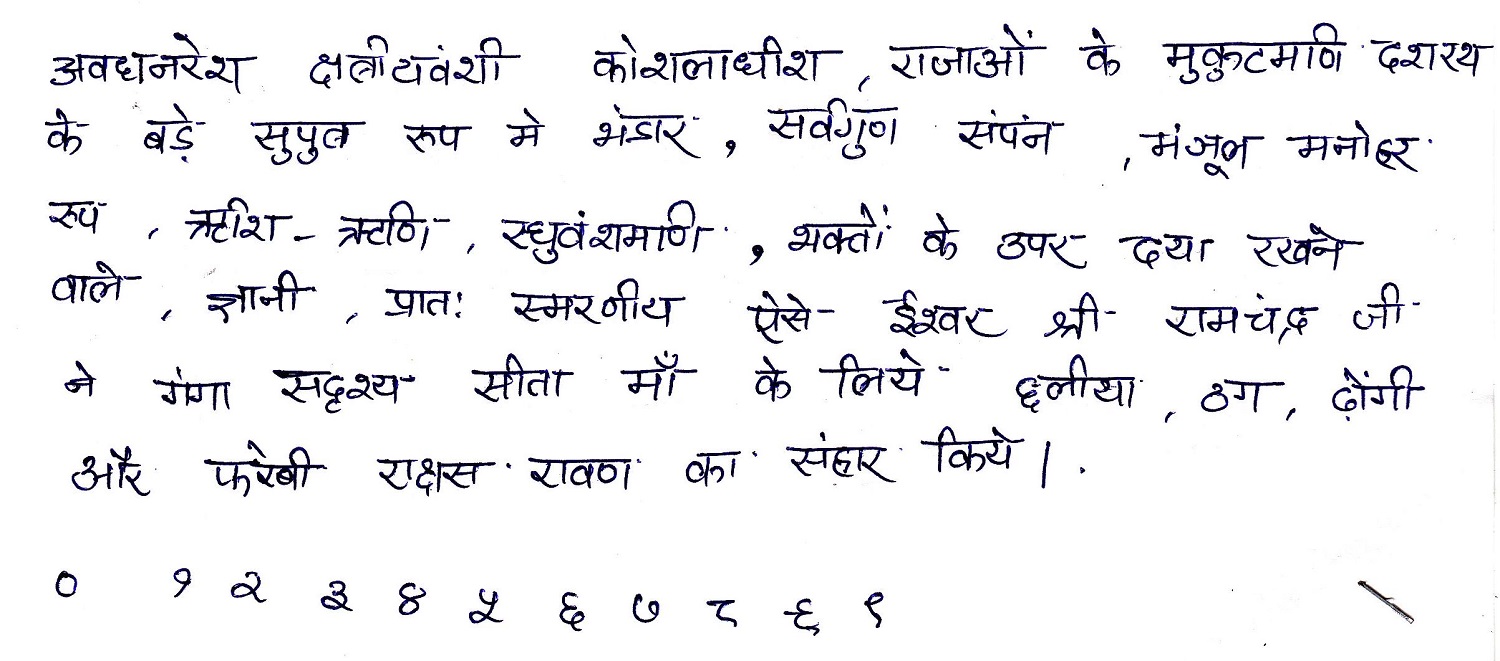 अवधनरेश क्षत्रीयवंशी कोशलाधीश, राजाओं के मुकुटमणि दशरथ
के बड़े सुपुत्र रूप मे भंडार, सर्वगुण संपंन, मंजूल मनोहर
रूप, ऋषि, रघुवंशमणि, भक्तों के उपर दया रखने
वाले, ज्ञानी, प्रातः स्मरणीय ऐसे ईश्वर श्री रामचंद्र जी
ने गंगा सदृश्य सीता माँ के लिये छलीया, ठग, ढ़ोंगी
और फरेबी राक्षस रावण का संहार किये।
० १ २ ३ ४ ५ ६ ७ ८ ९ ९